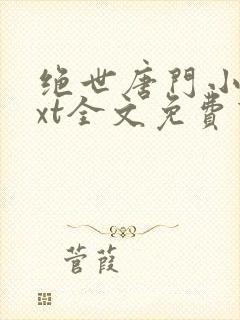 绝世唐門小
xt全文免費
菅葭